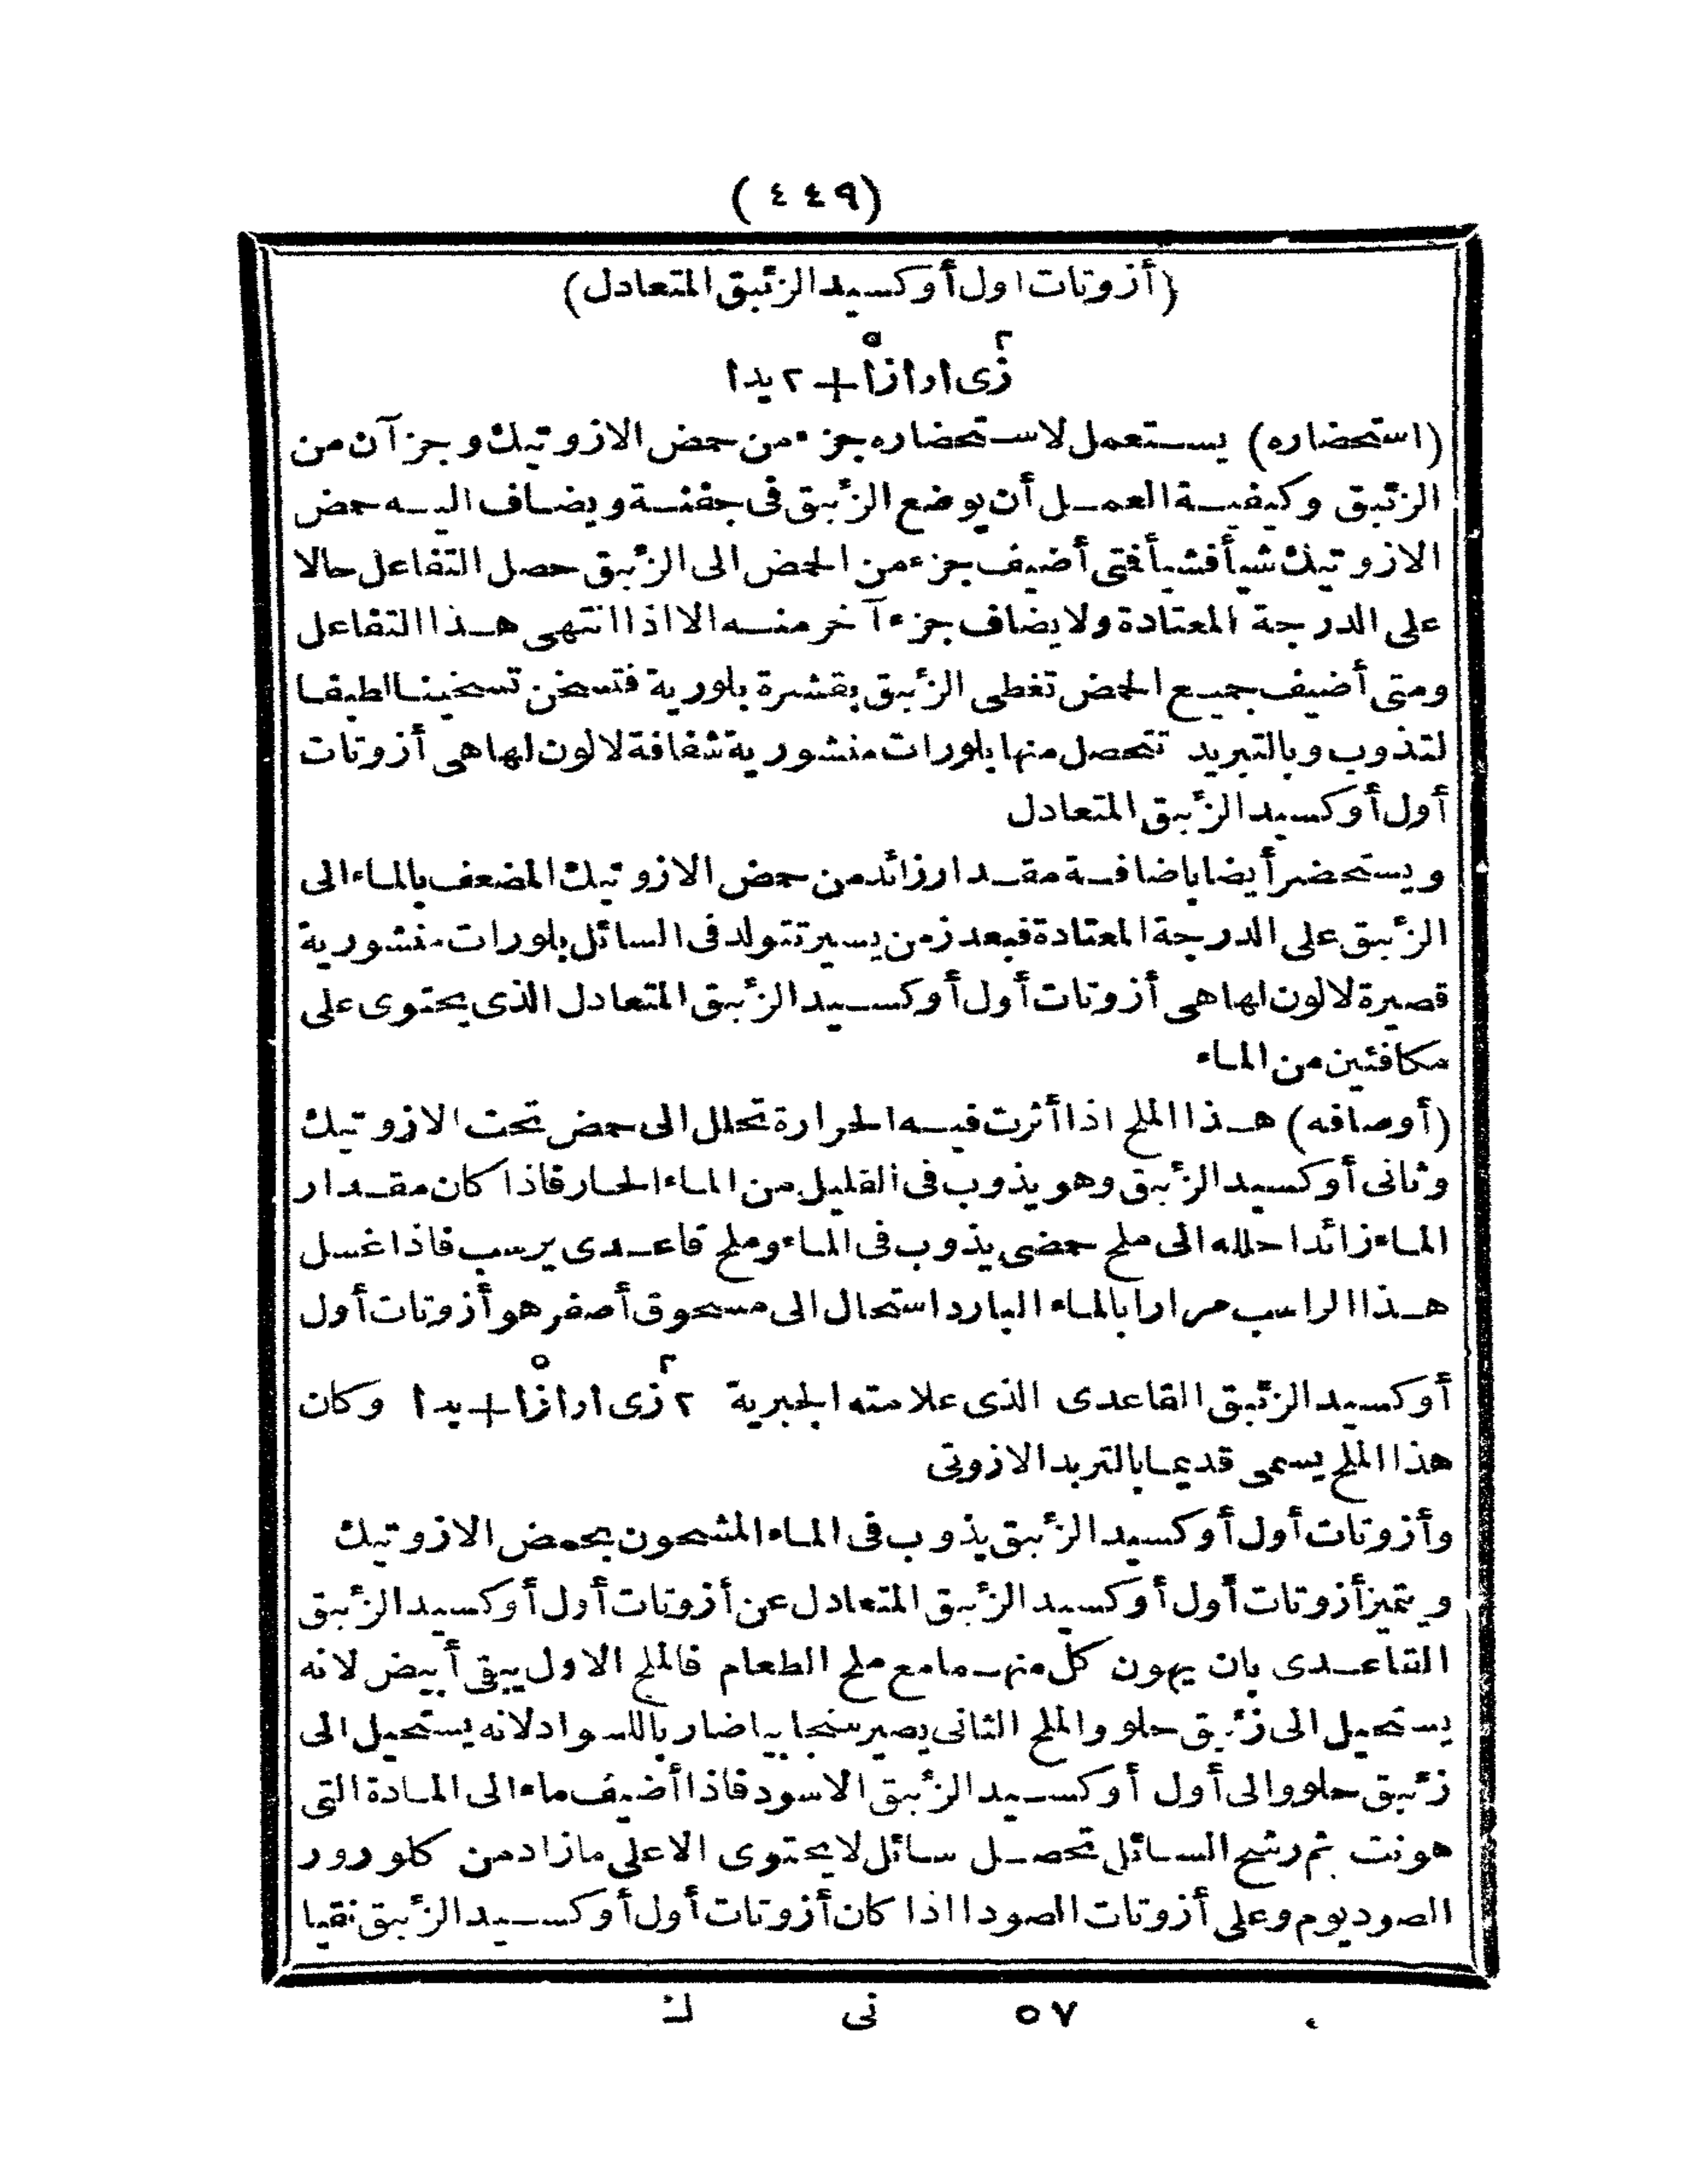 (٤٤٩)
(أزوتات اول أوكسيد الزئبق المتعادل)
٢ ٥
زى ا ر ا ز ا + ٢ يد ا
(استحضاره) يستعمل لاستحضاره جزء من حمض الازوتيك وجزآن من
الزئبق وكيفية العمل أن يوضع الزئبق فى جفنة ويضاف اليه حمض
الازوتيك شيأ فشيأ فتى أضيف جزء من الحمض الى الزئبق حصل التفاعل حالا
على الدرجة المعتادة ولا يضاف جزء آخر منه الا اذا انتهى هذا التفاعل
ومتى أضيف جميع الحمض تغطى الزئبق بقشرة بلورية فتسخن تسخينا لطيفا
لتذوب وبالتبريد تتحصل منها بلورات منشورية شفافة لالون لها هى أزوتات
أول أوكسيد الزئبق المتعادل
ويستحضر أيضا باضافة مقدار زائد من حمض الازوتيك المضعف بالماء الى
الزئبق على الدرجة المعتادة فبعد زمن يسير تتولد فى السائل بلورات منشورية
قصيرة لالون لها هى أزوتات أول أوكسيد الزئبق المتعادل الذى يحتوى على
مكافئين من الماء
(أوصافه) هذا الملح اذا أثرت فيه الحرارة تحلل الى حمض تحت الازوتيك
وثانى أوكسيد الزئبق وهو يذوب فى القليل من الماء الحار فاذا كان مقدار
الماء زائدا حلله الى ملح حمضى يذوب فى الماء وملح قاعدى يرسب فاذا غسل
هذا الراسب مرارا بالماء البارد استحال الى مسحوق أصفر هو أزوتات أول
٢ ٥
أوكسيد الزئبق القاعدى الذى علامته الجبرية ٢ زى ا ر ا ز ا + يد ا وكان
هذا الملح يسمى قديما بالتربد الازوتى
وأزوتات أول أوكسيد الزئبق يذوب فى الماء المشحون بحمض الازوتيك
ويتميز أزوتات أول أوكسيد الزئبق المتعادل عن أزوتات أول أوكسيد الزئبق
القاعدى بان يهون كل منهما مع ملح الطعام فالملح الاول يبقى أبيض لانه
يستحيل الى زئبق حلو والملح الثانى يصير سنجابيا ضاربا للسواد لانه يستحيل الى
زئبق حلو والى أول أوكسيد الزئبق الاسود فاذا أضيف ماء الى المادة التى
هونت ثم رشح السائل تحصل سائل لا يحتوى الا على مازاد من كلورور
الصوديوم وعلى أزوتات الصودا اذا كان أزوتات أول أوكسيد الزئبق نقيا
٥٧ نى ك